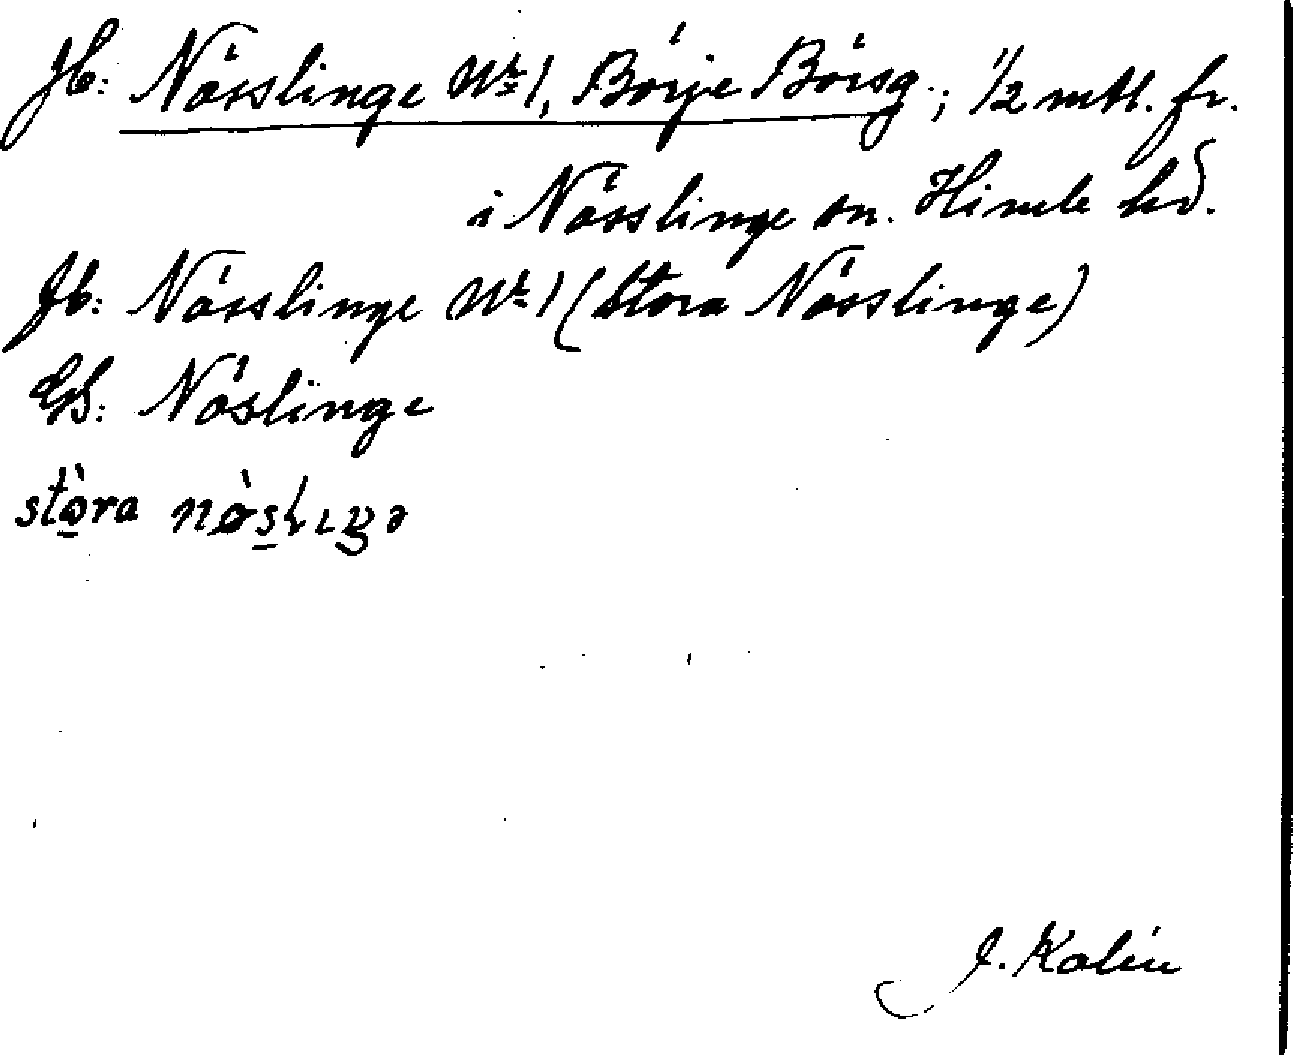 Jb: Nösslinge Nr 1, Börje Börsg.; 1/2 mtl. fr.
i Nösslinge sn. Himle hd.
Jb: Nösslinge Nr 1 (Stora Nösslinge)
GS: Nöslinge
stòra
J. Kalén